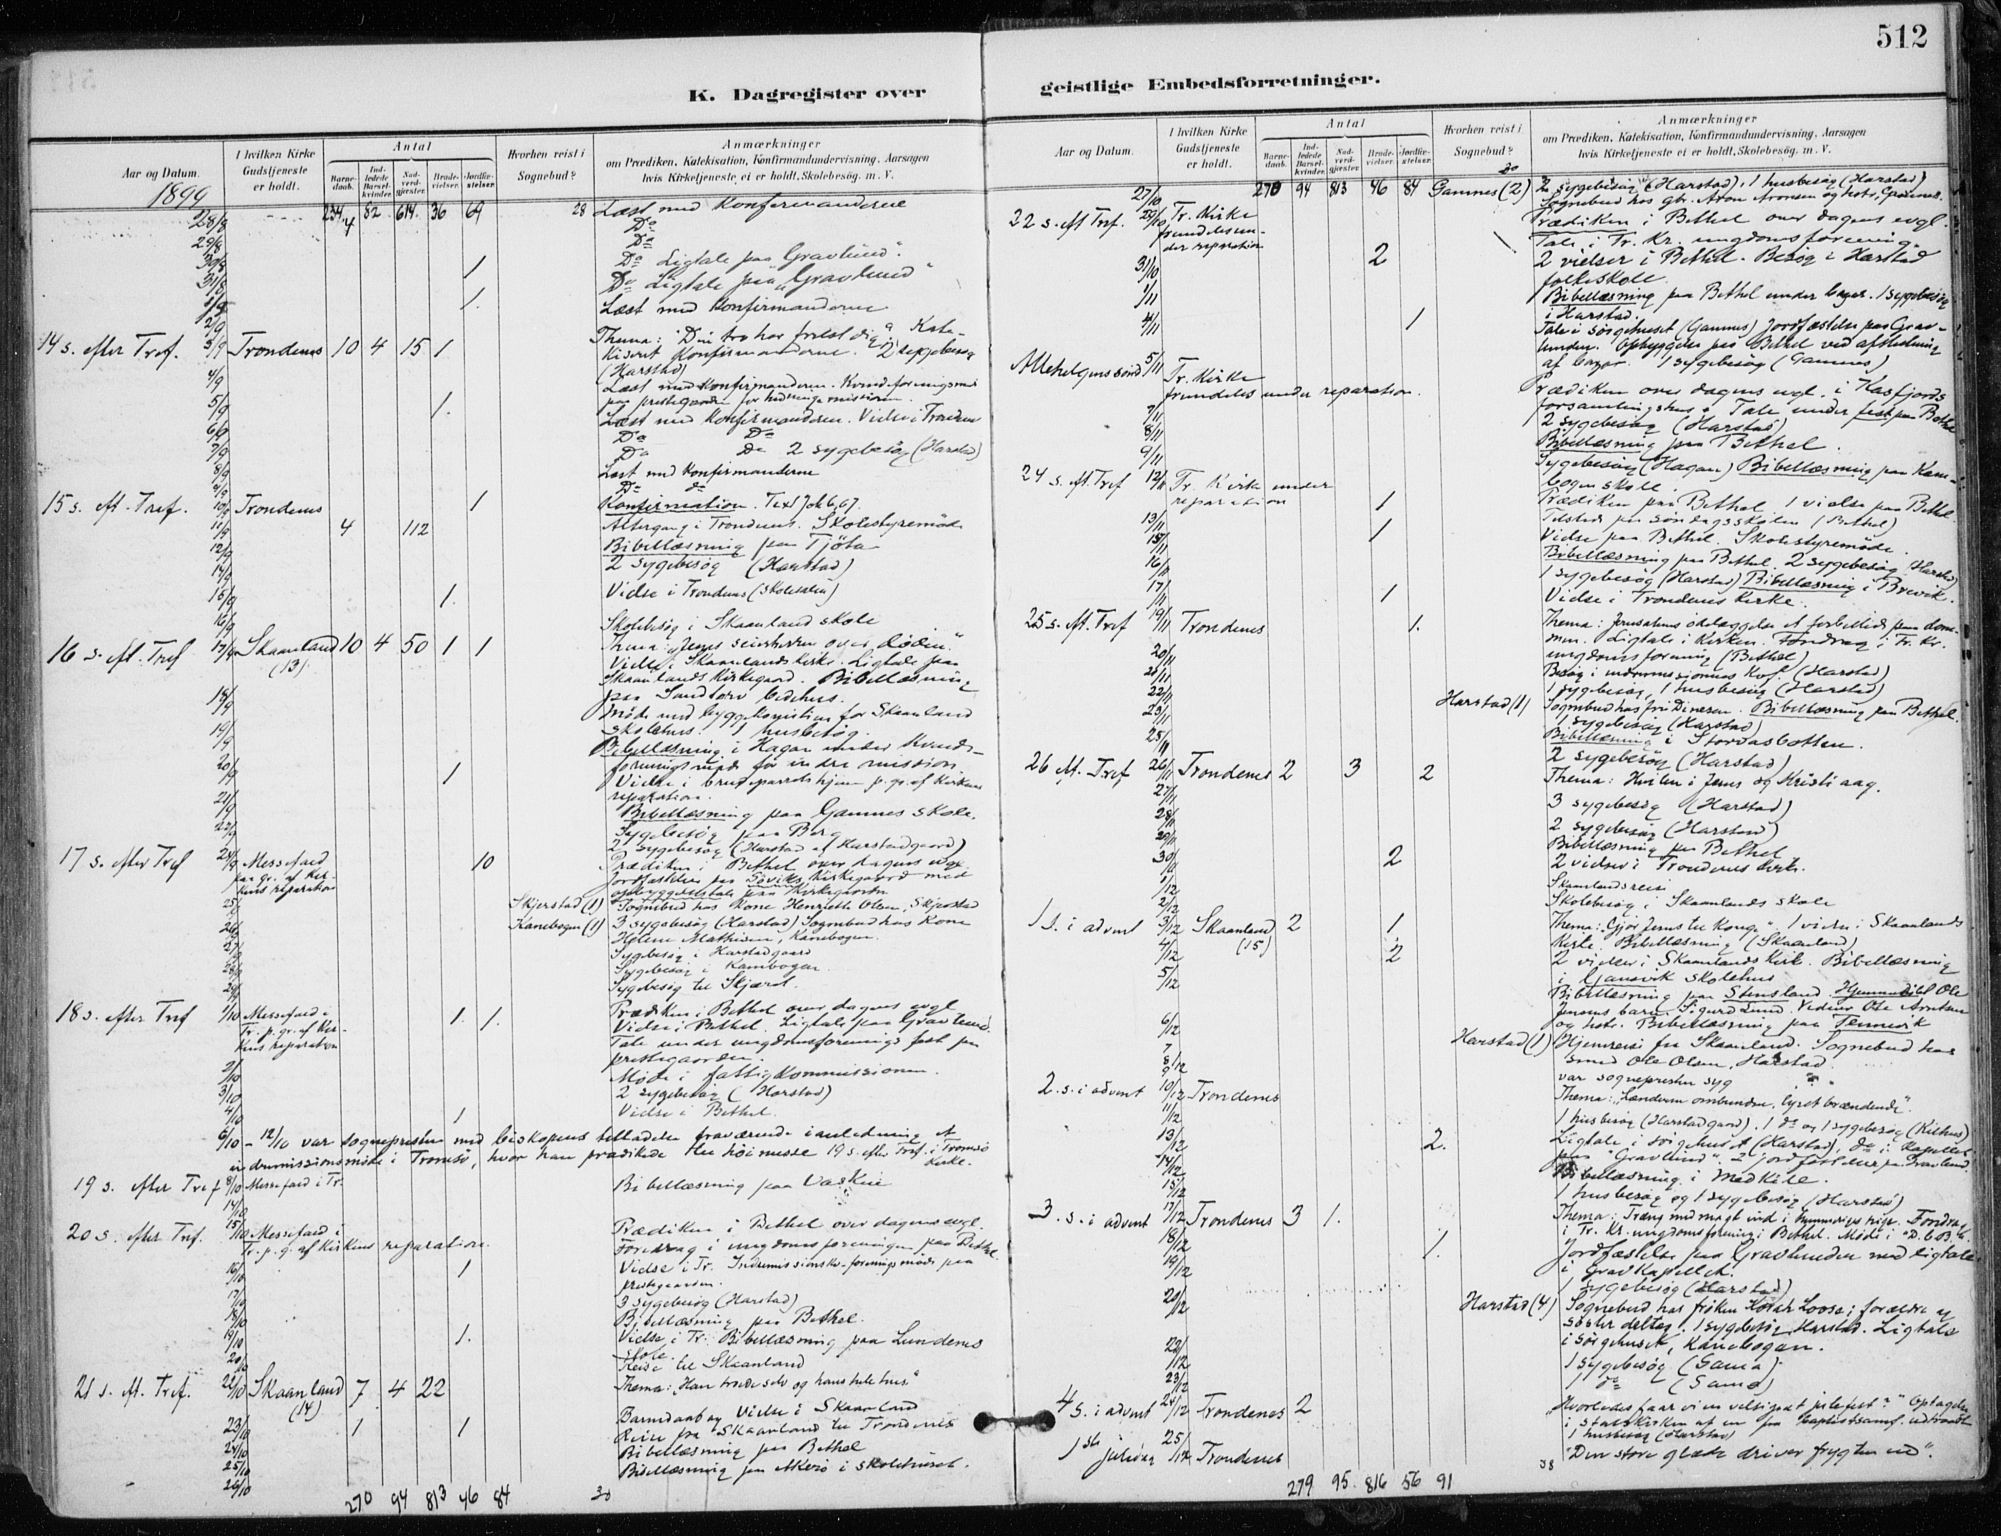 512
K. Dagregister over
geistlige Embedsforretninger.
Aar og Datum.
1899
I hvilken Kirke Gudstjeneste er holdt.
Antal
Barnedaab.
Indledede Barselkvinder.
Nadverdgjester.
Brudevielser.
Jordfæstelser.
Hvorhen reist i Sognebud?
Anmærkninger
om Prædiken, Katekisation, Konfirmandundervisning, Aarsagen
hvis Kirketjeneste ej er holdt, Skolebesøg. m. V.
28/8 234 82 614 36 69 28 Læst med Konfirmanderne
29/8 Do
30/8 Do Ligtale paa Gravlund". 1
31/8 Do Ligtale paa "Gravlund" 1.
Læst med Konfirmanderne
2/9
14 s. efter Tref. 3/9 Trondenes 10 4 15 1 Thema: Din tro har frelst dig". Kate-
kiseret Konfirmanderne. 2 sygebesøg
(Harstad)
4/9 Læst med Konfirmanderne. Kvindeforeningsmøde
paa prestegaarden for hedningemissionen.
5/9 1. Læst med Konfirmanderne. Vielse i Trondenes
6/9 Do Do
7/9 Do Do 2 sygebesøg (Harstad)
8/9 Læst med Konfirmanderne
9/9 Do do
15 s. eft. Tref. 10/9 Trondenes 1 Konfirmation. Text Joh 6,67.
11/9 4 112 Altergang i Trondenes. Skolestyremøde
12/9 Bibellæsning paa Tjøta
14/9 2 sygebesøg (Harstad)
15/9 1. Vielse i Trondenes (skolesalen)
16/9 Skolebesøg i Skaanland skole
16 s. eft. Tref 17/9 Skaanland (13) 10 4 50 1 1 Thema: Jesus seierherren over døden".
Vielse i Skaanlands Kirke. Ligtale paa
Skaanlands Kirkegaard. Bibellæsning
paa Sandtorv bedehus.
18/9 Møde med byggekomiteen for Skaanland
skolehus. 1 husbesøg.
19/9 Bibellæsning i Hagan under Kvinde-
foreningsmøde for indre mission
20/9 1 Vielse i brudeparrets hjem p. gr. af Kirkens
reparation.
21/9 Bibellæsning paa Gamnes skole.
22/9 Sygebesøg paa Berg
2 sygebesøg (Harstad og Harstadgaard)
17 s. efter Tref 24/9 Messefald
paa gr. af Kir-
kens reparation 10 Prædiken i Bethel over dagens evgl.
Jordfæstelser paa Søviks Kirkegaard med
opbyggelsestale paa Kirkegaarden
25/9 Skjerstad (1) Sognebud hos Kone Henriette Olsen, Skjerstad
Kanebogen (1) 3 sygebesøg (Harstad) Sognebud hos Kone
Helene Mathisen, Kanebogen.
26/9 Sygebesøg i Harstadgaard
27/9 Sygebesøg i Kanebogen
28/9 Sygebesøg til Skjærst.
29/9
18 s. efter Tref 1/10 Messefald i
Tr. p. gr. af Kir-
kens reparation 1. 1. Prædiken i Bethel over dagens evgl
Vielse i Bethel. Ligtale paa Gravlund.
Tale under ungdomsforenings fest paa
prestegaarden.
2/10 Møde i fattigkommissionen
3/10 2 sygebesøg (Harstad)
4/10 1 Vielse i Bethel.
6/10 – 12/10 var sognepresten med biskopens tilladelse fraværende i anledning et
indremissionsmøde i Tromsø, hvor han prædikede til høimesse 19 s. efter Tref. i Tromsø
Kirke.
19 s. efter Tref 8/10 Messefald i Tr.
14/10 Bibellæsning paa Vaskie
20 s. efter Tref. 15/10 Messefald i
Tr. p. g. af Kirkens reparation. Prædiken i Bethel over dagens evgl.
Foredrag i ungdomsforeningen paa Bethel.
16/10 1 Vielse i Tr. Indremissionsforenings møde paa
prestegaarden.
17/10 3 sygebesøg (Harstad)
18/10 Bibellæsning paa Bethel.
19/10 1. Vielse i Tr. Bibellæsning paa Lundenes
skole.
20/10 Reise til Skaanland
21 s. eft. Tref. 22/10 Skaanland (14) 7 4 22 Thema: "Han troede selv og hans hele hus."
23/10 1 1 Barnedaab og Vielse i Skaanland
Reise fra Skaanland til Trondenes
24/10 Bibellæsning paa Bethel
25/10 Bibellæsning paa Akerø i skolehuset.
26/10
270 94 813 46 84 30
Aar og Datum.
I hvilken Kirke Gudstjeneste er holdt.
Antal
Barnedaab.
Indledede Barselkvinder.
Nadverdgjester.
Brudevielser.
Jordfæstelser.
Hvorhen reist i Sognebud?
Anmærkninger
om Prædiken, Katekisation, Konfirmandundervisning, Aarsagen
hvis Kirketjeneste ei er holdt, Skolebesøg. m. V.
27/10 270 94 813 46 84 30 Gamnes (2) 2 sygebesøg (Harstad), 1 husbesøg (Harstad)
Sognebud hos gbr. Aron Aronsen og hstr., Gamnes.
22 s. eft Tref. 29/10 Tr. Kirke
fremdeles un-
der reparation Prædiken i Bethel over dagens evgl.
Tale i Tr. Kr. ungdomsforening.
31/10 2 2 vielser i Bethel. Besøg i Harstad
folkeskole.
1/11 Bibellæsning paa Bethel under bazar. 1 sygebesøg
i Harstad.
4/11 1 Tale i sørgehuset (Gamnes) Jordfæstelse paa Grav-
lunden. Opbyggelse paa Bethel ved afslutning
af bazar. 1 sygebesøg (Gamnes)
Allehelgens sønd 5/11 Tr. Kirke
fremdeles under reparation. Prædiken over dagens evgl. i Kasfjords
forsamlingshus. Tale under fest paa Bethel
7/11 2 sygebesøg (Harstad)
8/11 Bibellæsning paa Bethel.
9/11 Sygebesøg (Hagan) Bibellæsning paa Kane-
bogen skole.
24 s. eft. Tref 12/11 Tr. Kirke under
reparation 1 Prædiken paa Bethel 1 vielse paa Bethel
Tilstede paa søndagsskolen (Bethel)
13/11 1 Vielse paa Bethel. Skolestyremøde.
15/11 Bibellæsning paa Bethel. 2 sygebesøg (Harstad)
16/11 1 sygebesøg (Harstad) Bibellæsning i Brevik.
17/11 1 Vielse i Trondenes Kirke.
25 s. eft. Tref 19/11 Trondenes 1. Thema: Jerusalems ødelæggelse et forbillede paa dom-
men. Ligtale i Kirken. Foredrag i Tr. Kr.
ungdomsforening (Bethel)
20/11 Besøg i indremissionens Kvf. (Harstad)
21/11 1 sygebesøg, 1 husbesøg (Harstad)
22/11 Harstad (1) Sognebud hos fru Dinesen. Bibellæsning paa Bethel.
23/11 1 sygebesøg (Harstad)
25/11 Bibellæsning i Stordasbotten.
2 sygebesøg (Harstad)
26 eft. Tref 26/11 Trondenes 2 3 2 Thema: Hvilen i Jesus og Kristi aag.
27/11 3 sygebesøg (Harstad)
28/11 2 sygebesøg (Harstad)
29/11 Bibellæsning paa Bethel
30/11 2 2 vielser i Trondenes kirke.
1/12 Skaanlandsreise
2/12 Skolebesøg i Skaanlands skole
1 s. i advent 3/12 Skaanland (15) 2 1 Thema: Gjør Jesus til Konge". 1 vielse i Skaanlands
Kirke. Bibellæsning (Skaanland)
4/12 2 2 vielser i Skaanlands Kirke. Bibellæsning
i Gausvik skolehus
5/12 Bibellæsning paa Stensland. Hjemmedøbt Ole
Jensens barn Sigurd Lund. Viet Ole Arntsen
6/12 og hstr. Bibellæsning paa Tennevik
7 Harstad (1) Hjemreise fra Skaanland. Sognebud hos
8/12 smed Ole Olsen, Harstad.
9 var sognepresten syg
2. s. i advent 10/12 Trondenes Thema: "Lænderne ombundne, lyset brændende".
11/12 1 husbesøg (Harstadgaard). 1 do og 1 sygebesøg (Kilhus)
13/12 2. Ligtale i sørgehuset (Harstad), do i Kapellet
paa "Gravlund". 2 jordfæstelser paa Gravlund.
14/12 Bibellæsning i Mødkile.
15/12 1 husbesøg og 1 sygebesøg (Harstad)
3. s. i advent 17/12 Trondenes 3 1. Thema: Træng med magt ind i himmeriges rige. Foredrag
i Tr. Kr. ungdomsforening i Bethel. Møde i "D. b. B."
18/12 1. Jordfæstelse paa Gravlunden med ligtale
i Gravkapellet.
19/12 1 sygebesøg (Harstad)
20/12 Harstad (4) Sognebud hos frøken Loose; forældre og
søster deltog. 1 sygebesøg Harstad. Ligtale
i sørgehuset, Kanebogen.
22/12 1 sygebesøg (Sama)
23/12 1 do (Sama)
4 s. i advent 24/12 Trondenes 2 Hvorledes faar vi en velsignet julefest?" Optagelse
i statskirken af en fra baptistsamf. udtraadt
1 husbesøg (Harstad)
1ste juledag 25/12 Trondenes 38 "Den store glæde driver frygten ud".
279 95 816 56 91